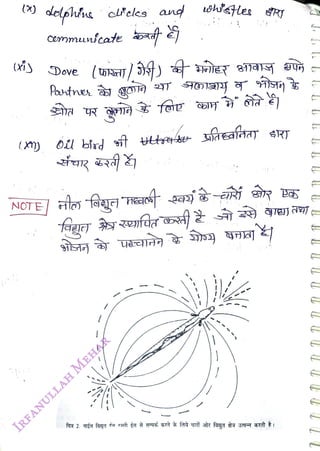 (x) dolphins clicks and whistles द्वारा
communicate करती हैं।
(xi) Dove (फाख्ता/गेरी) की मनोहर आवाज अपने
Partner को बुलाने या जलाशय व भोजन के
स्रोत पर बुलाने के लिए काम में लेते हैं।
(xii) Oil bird भी प्रतिध्वनिता द्वारा
संचार करती हैं।
NOTE नील विद्युत मछली स्वयं के चारों ओर एक
विद्युत क्षेत्र स्थापित करती है जो उसे तथा
भोजन को पहचानने के योग्य बनाता है।
IRFANULLAH MEHAR
चित्र 2. नाईल विद्युत ईल से सम्पर्क करने के लिये चारों ओर विद्युत क्षेत्र उत्पन्न करती है।